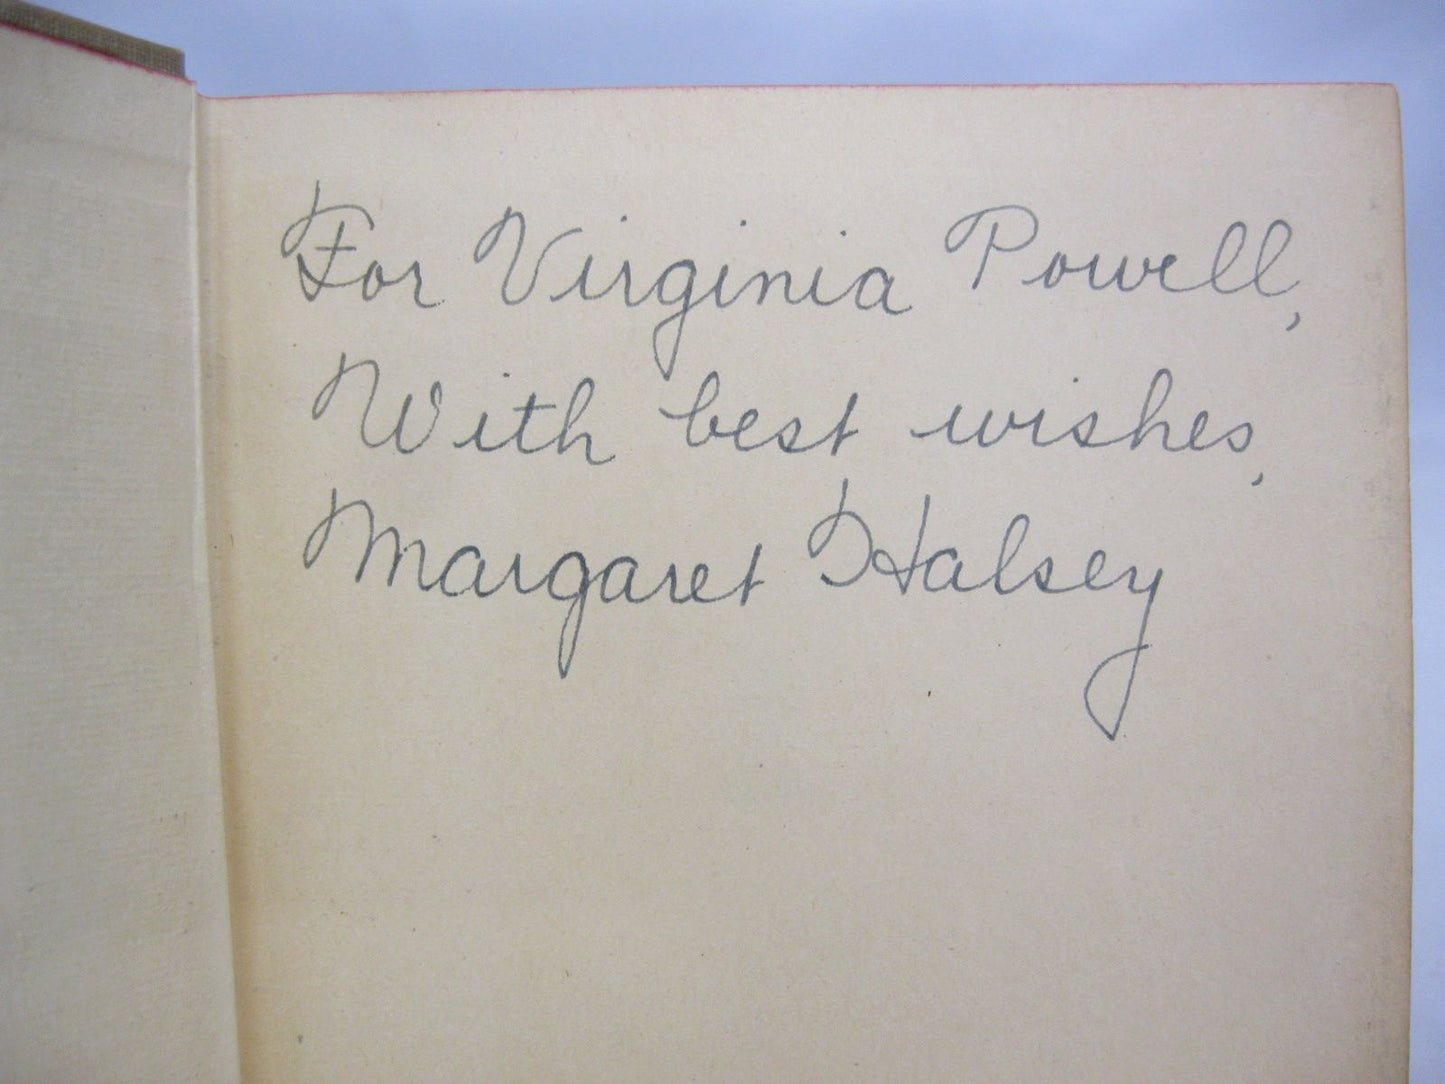 For Virginia Powell,
With best wishes,
Margaret Halsey